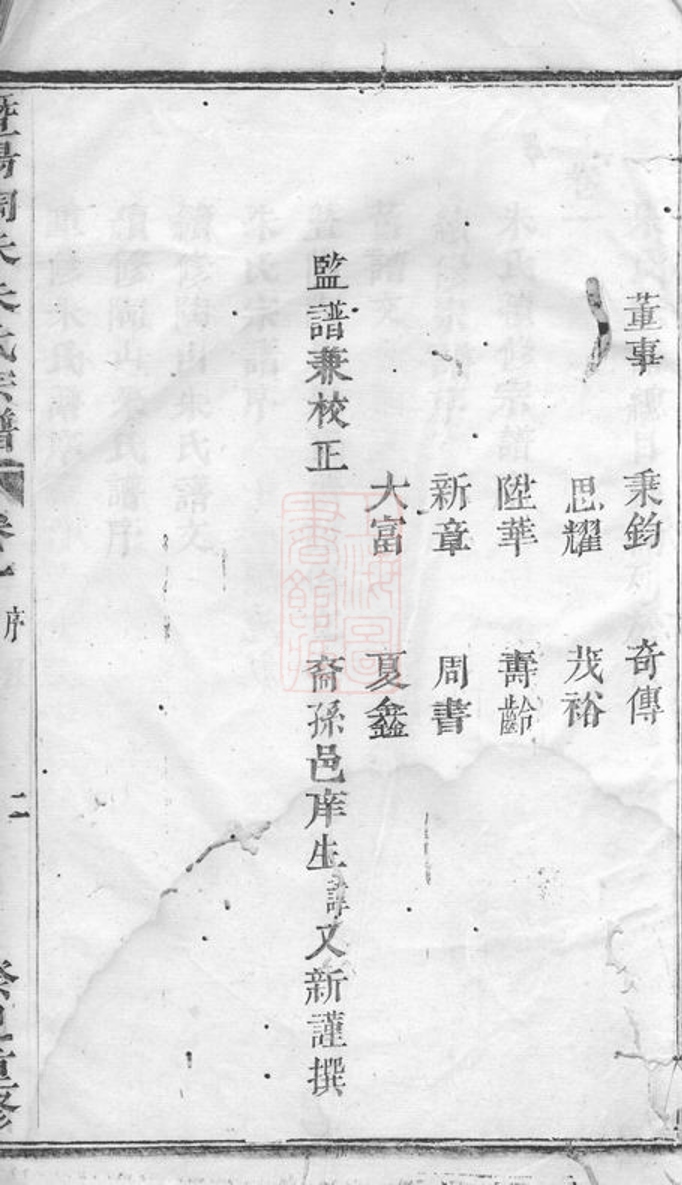 董事 秉鈞 奇傳
思耀 茂裕
陞華 壽齡
新章 周書
大富 夏鑫
監譜兼校正 裔孫邑庠生諱文新謹撰
暨陽 朱氏宗譜 卷一 序 二 重修